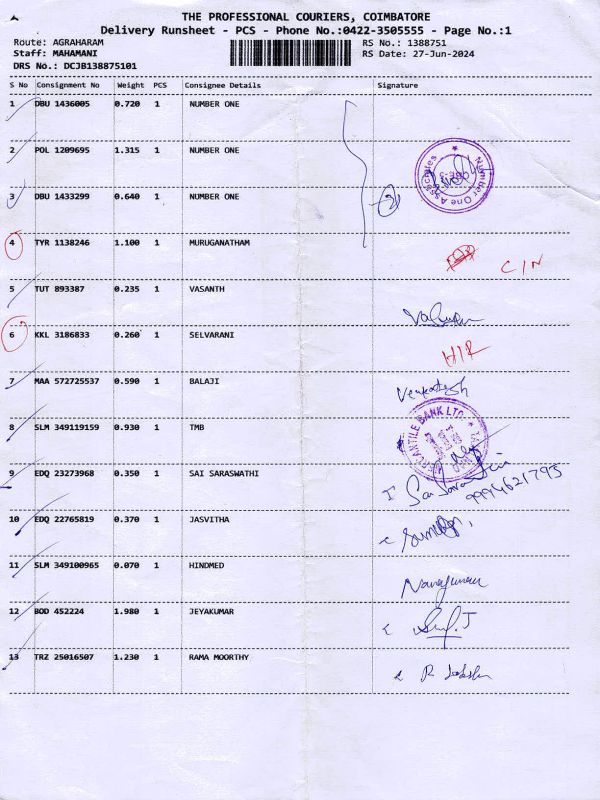 THE PROFESSIONAL COURIERS, COIMBATORE
Delivery Runsheet - PCS - Phone No.:0422-3505555 - Page No.:1
Route: AGRAHARAM RS No.: 1388751
Staff: MAHAMANI RS Date: 27-Jun-2024
DRS No.: DCJB138875101
S No Consignment No Weight PCS Consignee Details Signature
1 DBU 1436005 0.720 1 NUMBER ONE
2 POL 1209695 1.315 1 NUMBER ONE
Number One Associates
3 DBU 1433299 0.640 1 NUMBER ONE
4 TYR 1138246 1.100 1 MURUGANATHAM
C/N
5 TUT 893387 0.235 1 VASANTH
6 KKL 3186833 0.260 1 SELVARANI
H/R
7 MAA 572725537 0.590 1 BALAJI Venkatesh
8 SLM 349119159 0.930 1 TMB
MERCANTILE BANK LTD.
9 EDQ 23273968 0.350 1 SAI SARASWATHI
9994621793
10 EDQ 22765819 0.370 1 JASVITHA
11 SLM 349100965 0.070 1 HINDMED
12 BOD 452224 1.980 1 JEYAKUMAR
13 TRZ 25016507 1.230 1 RAMA MOORTHY